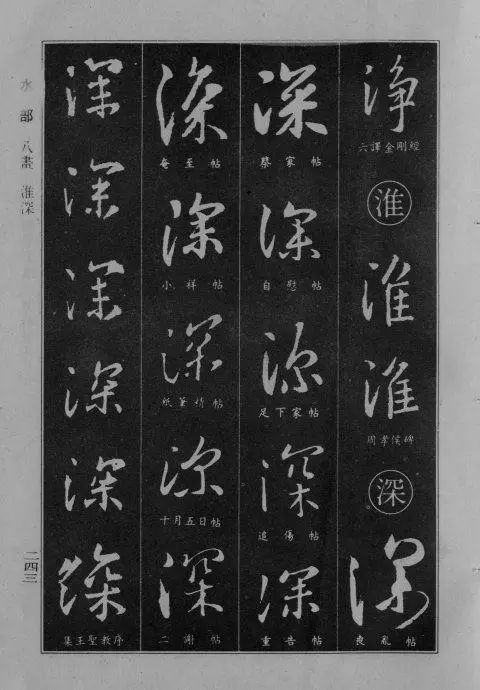 淨
六譯金剛經
淮
淮
淮
周孝侯碑
深
深
喪亂帖
深
蔡家帖
深
自慰帖
深
足下家帖
深
追傷帖
深
重告帖
深
奄至帖
深
小祥帖
深
深
十月五日帖
深
二謝帖
深
深
深
深
深
深
集王聖教序
水部 八畫 淮深
二四三